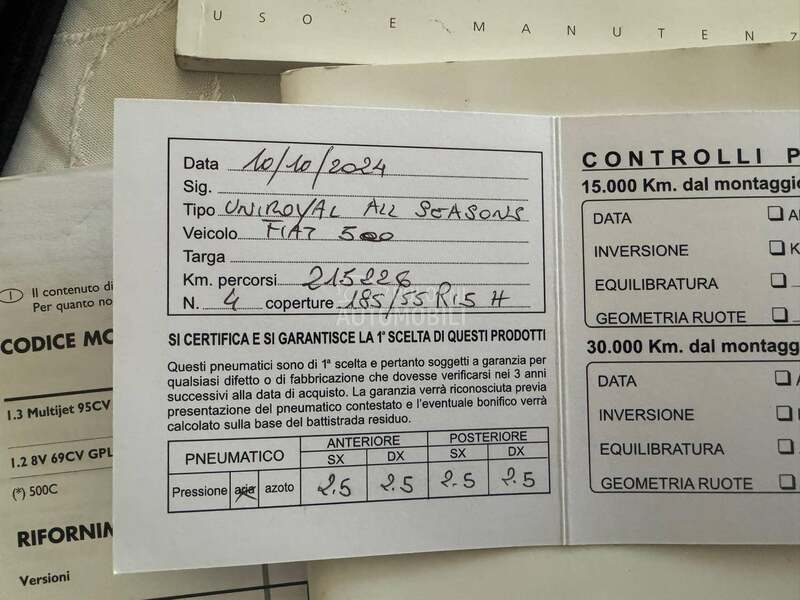 USO E MANUTENZ
Data 10/10/2024
Sig.
Tipo UNIROYAL ALL SEASONS
Veicolo FIAT 500
Targa
Km. percorsi 215226
N. 4 coperture 185/55 R15 H
AUTOMOBILI
SI CERTIFICA E SI GARANTISCE LA 1ª SCELTA DI QUESTI PRODOTTI
Questi pneumatici sono di 1ª scelta e pertanto soggetti a garanzia per
qualsiasi difetto o di fabbricazione che dovesse verificarsi nei 3 anni
successivi alla data di acquisto. La garanzia verrà riconosciuta previa
presentazione del pneumatico contestato e l'eventuale bonifico verrà
calcolato sulla base del battistrada residuo.
PNEUMATICO ANTERIORE POSTERIORE
SX DX SX DX
Pressione aria azoto 2.5 2.5 2.5 2.5
CONTROLLI P
15.000 Km. dal montaggio
DATA
INVERSIONE
EQUILIBRATURA
GEOMETRIA RUOTE
30.000 Km. dal montagg
DATA
INVERSIONE
EQUILIBRATURA
GEOMETRIA RUOTE
Il contenuto di
Per quanto no
CODICE MO
1.3 Multijet 95CV
1.2 8V 69CV GPL
(*) 500C
RIFORNIM
Versioni